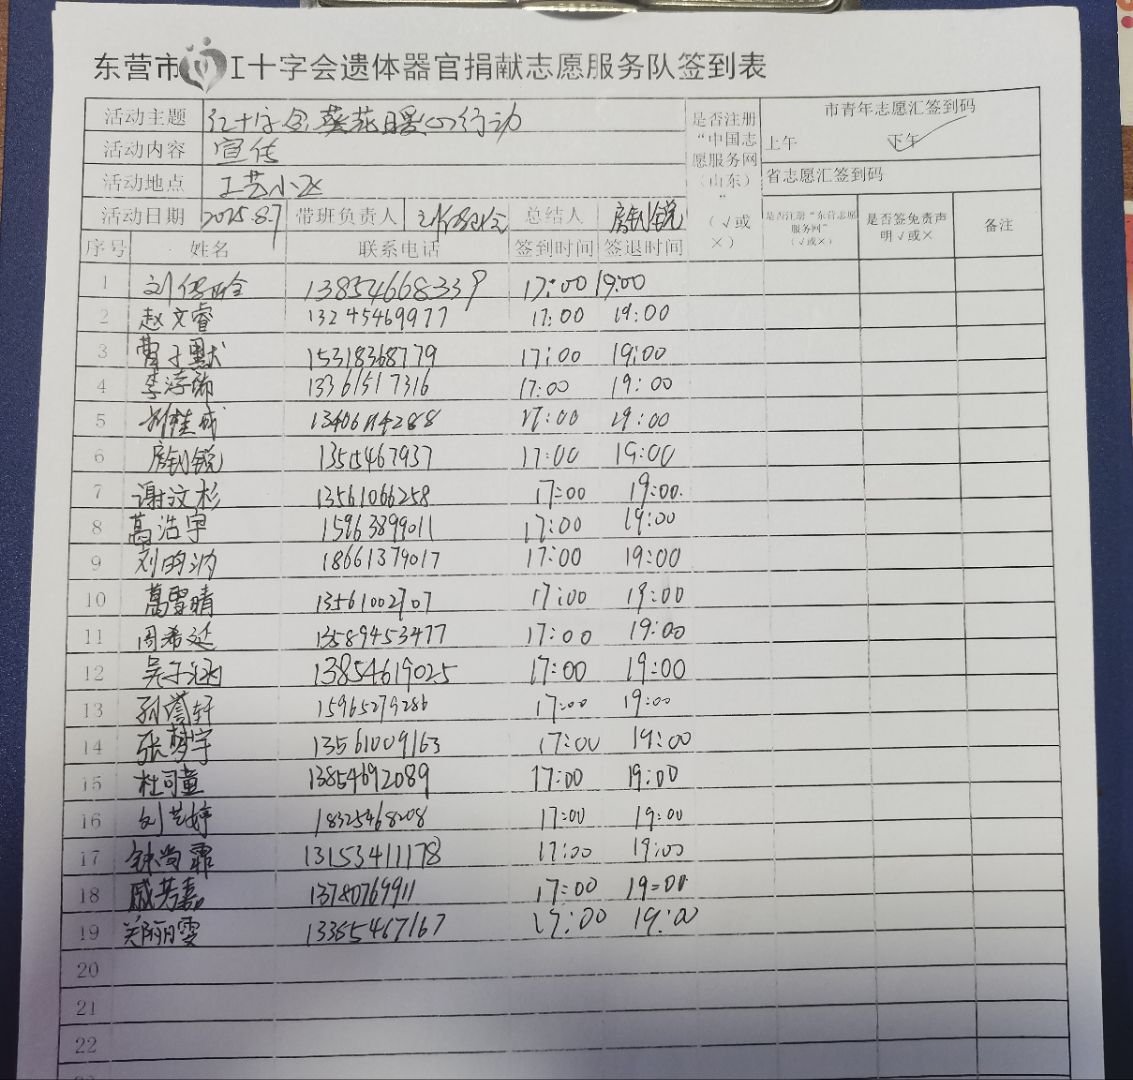 东营市工十字会遗体器官捐献志愿服务队签到表
活动主题 红十字会葵花暖心行动 是否注册“中国志愿服务网（山东）”（√或×） 市青年志愿汇签到码
活动内容 宣传 上午 下午 ✓
活动地点 工艺小区 省志愿汇签到码
活动日期 2025.8.7 带班负责人 总结人 房钊锐 是否注册“东营志愿服务网”（√或×） 是否签免责声明√或× 备注
序号 姓名 联系电话 签到时间 签退时间
1 刘 13854668339 17:00 19:00
2 赵文睿 13245469977 17:00 19:00
3 曹子默 15318368779 17:00 19:00
4 李 13361517316 17:00 19:00
5 17:00 19:00
6 房钊锐 17:00 19:00
7 谢汶杉 13561066258 17:00 19:00.
8 高浩宇 15963899011 17:00 19:00
9 刘昀 18661379017 17:00 19:00
10 葛雪晴 13561002707 17:00 19:00
11 周希延 13589453477 17:00 19:00
12 吴子涵 13854619025 17:00 19:00
13 孙誉轩 15965279286 17:00 19:00
14 张梦宇 13561009163 17:00 19:00
15 杜司童 13854692089 17:00 19:00
16 刘艺婷 18325468208 17:00 19:00
17 尚霏 13153411178 17:00 19:00
18 戚芳嘉 13780769911 17:00 19:00
19 郑丽雯 13365467167 17:00 19:00
20
21
22